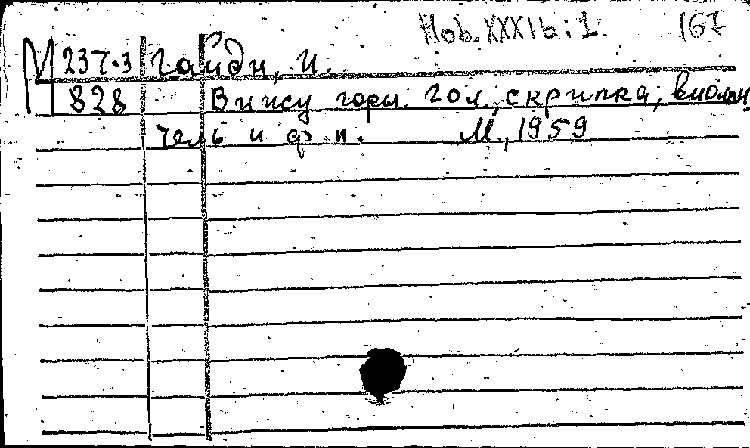 Hob. XXXIb: 1. 167
М 237-3 Гайдн, И.
828 Вижу горы. Гол., скрипка, виолон
чель и ф-п. М., 1959